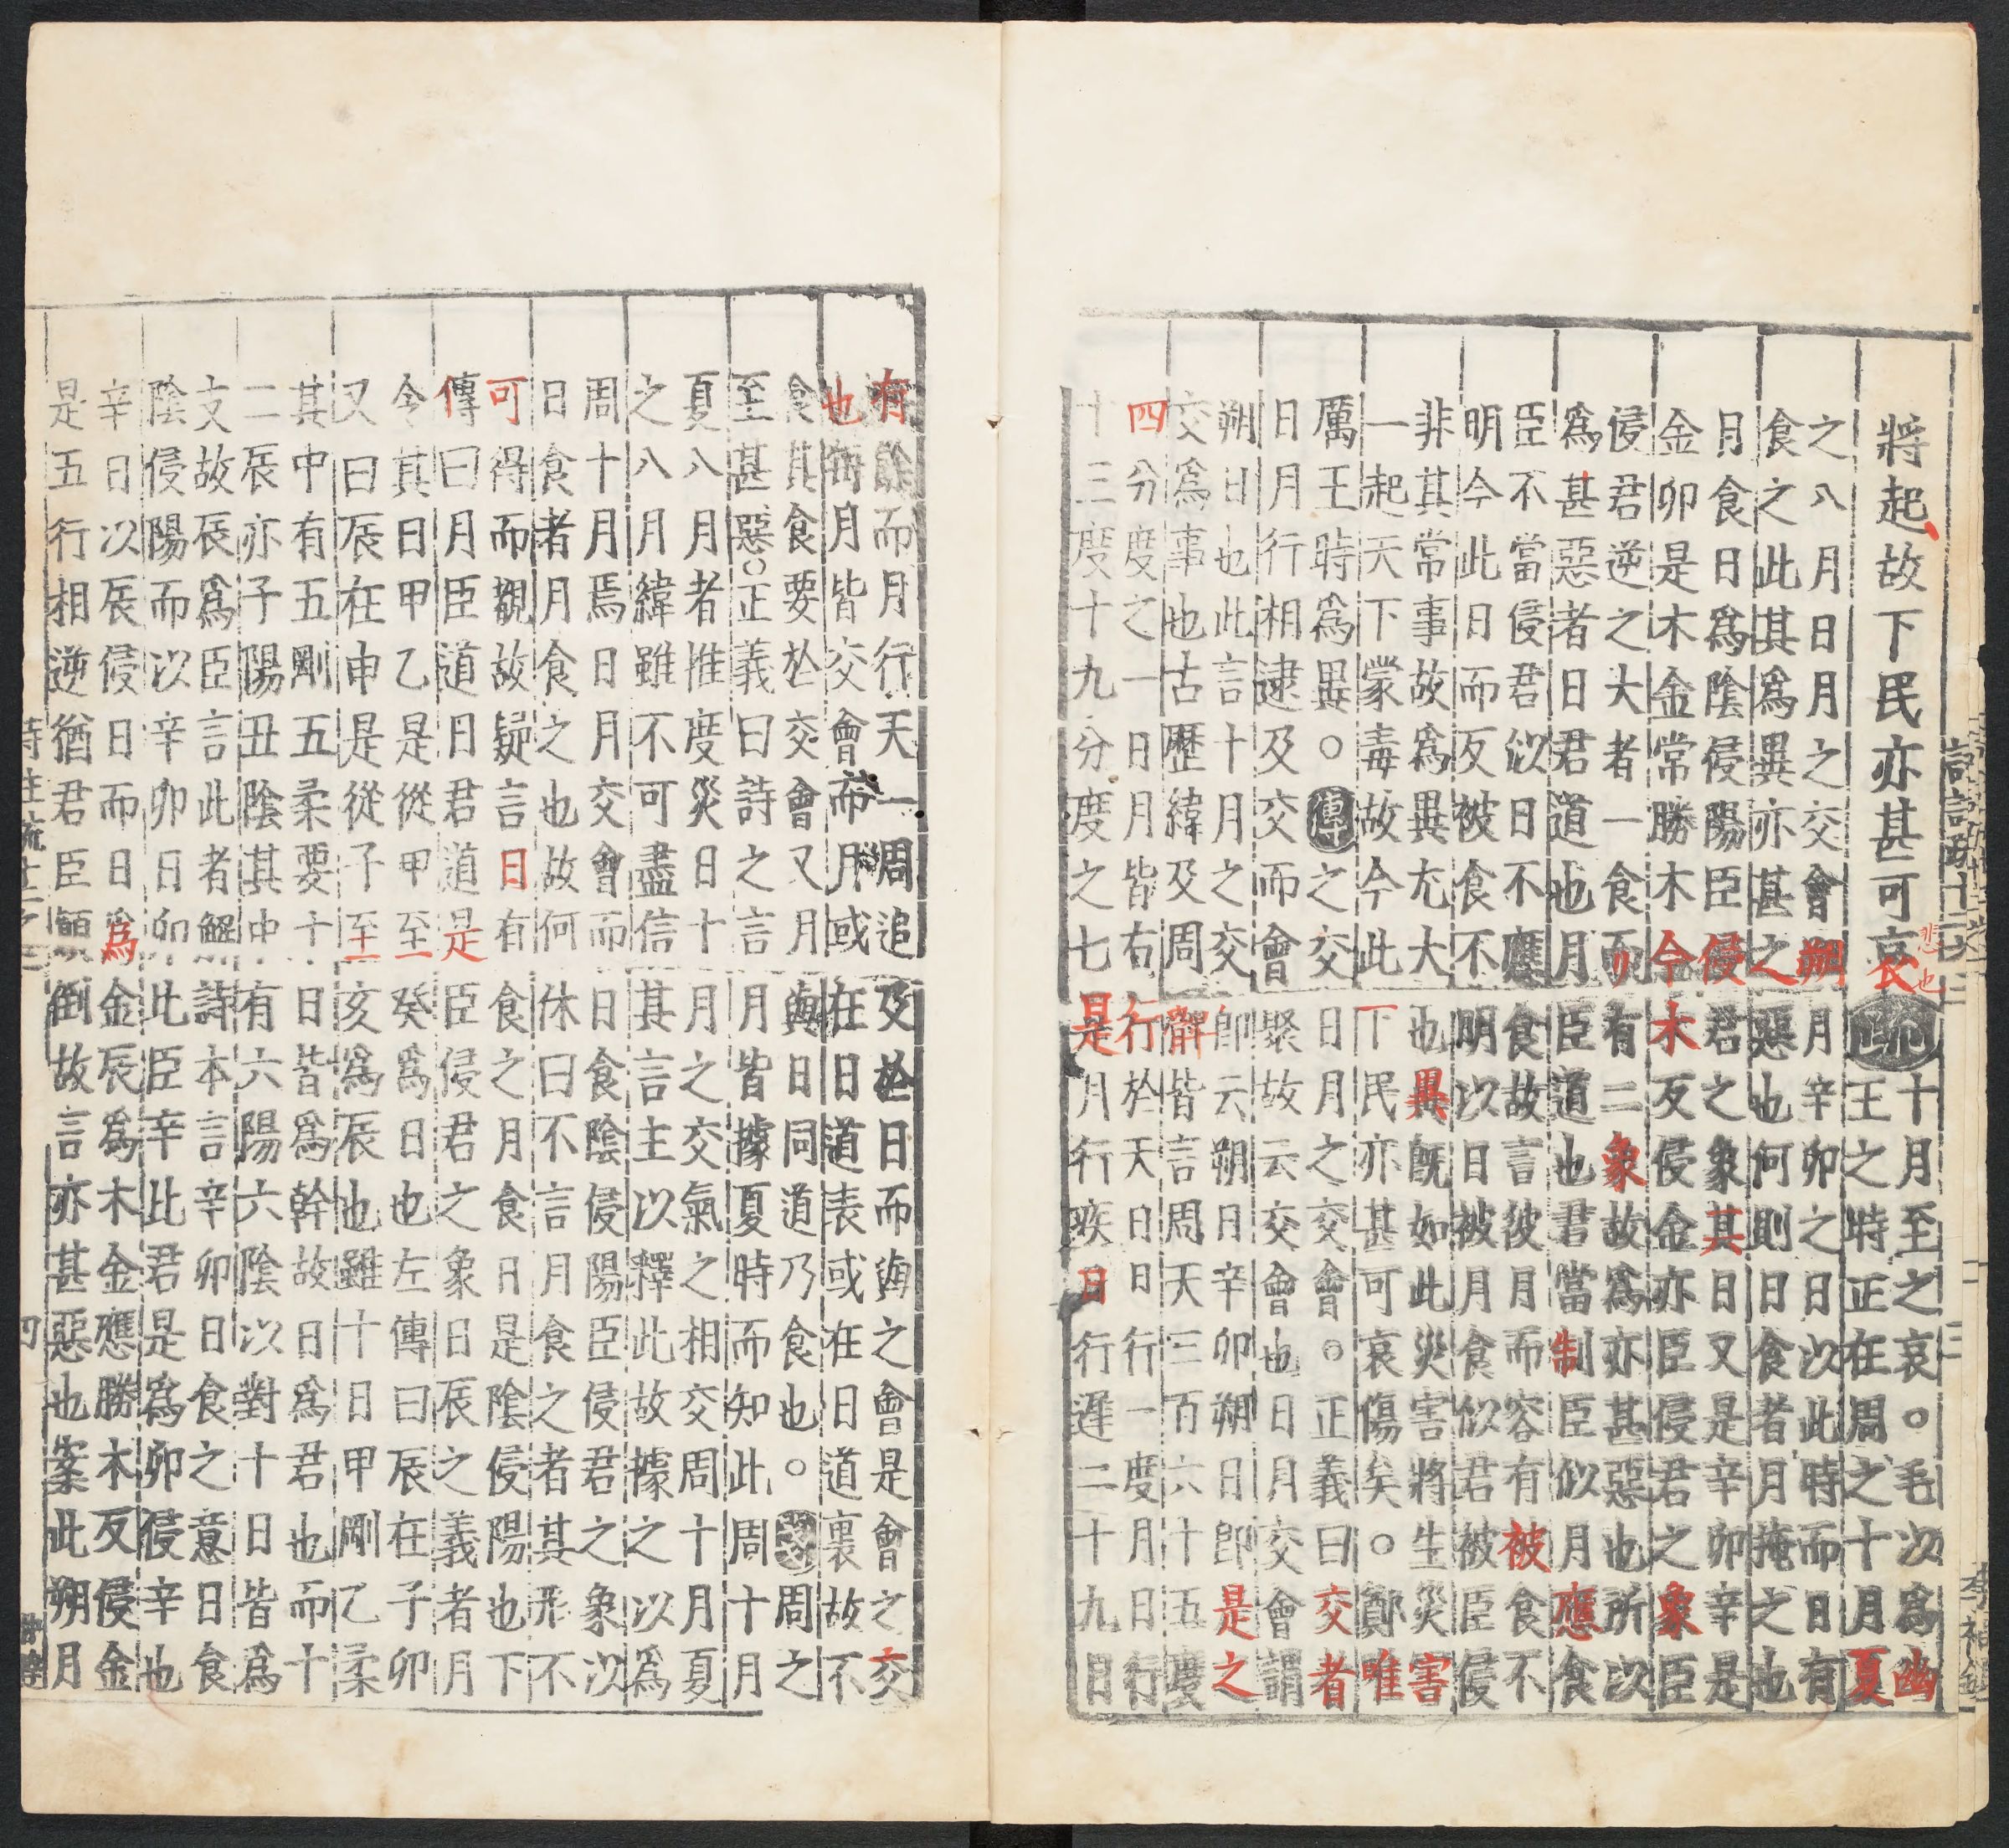 將起故下民亦甚可哀
悲也
疏
十月至之哀。毛次爲幽
王之時正在周之十月夏
之八月日月之交會朔月辛卯之日以此時而日有
食之此其爲異亦甚之惡也何則日食者月掩之也
月食日爲陰侵陽臣侵君之象其日又是辛卯辛是
金卯是木金常勝木今木反侵金亦臣侵君之象臣
侵君逆之大者一食而有二象故爲亦甚惡也所以
爲甚惡者日君道也月臣道也君當制臣似月應食
臣不當侵君似日不應食故言彼月而容有被食不
明今此日而反被食不明以日被月食似君被臣侵
非其常事故爲異尤大也異既如此災害將生災害
一起天下蒙毒故今此下民亦甚可哀傷矣。鄭唯
厲王時爲異。傳之交日月之交會。正義曰交者
日月行相逮及交而會聚故云交會也日月交會謂
朔日也此言十月之交即云朔日辛卯朔日即是之
交爲事也古歷緯及周髀皆言周天三百六十五度
四分度之一日月皆右行於天日日行一度月日行
十三度十九分度之七是月行疾日行遲二十九日
有餘而月行天一周追及於日而與之會是會之交
也每月皆交會而月或在日道表或在日道裏故不
食其食要於交會又月與日同道乃食也。箋周之
至甚惡○正義曰詩之言月皆據夏時而知此周十月
夏八月者推度災曰十月之交氣之相交周十月夏
之八月緯雖不可盡信其言主以釋此故據之以爲
周十月焉日月交會而日食陰侵陽臣侵君之象次
日食者月食之也故何休曰不言月食之者其形不
可得而覩故疑言日有食之月食日是陰侵陽也下
傳曰月臣道日君道是臣侵君之象日辰之義者月
令其日甲乙是從甲至癸爲日也左傳曰辰在子卯
又曰辰在申是從子至亥爲辰也雖十日甲剛乙柔
其中有五剛五柔要十日皆爲幹故日爲君也而十
二辰亦子陽丑陰其中有六陽六陰以對十日皆爲
支故辰爲臣言此者解詩本言辛卯日食之意日食
陰侵陽而以辛卯日卯此臣辛此君是爲卯侵辛也
辛日以辰侵日而日爲金辰爲木金應勝木反侵金
是五行相逆猶君臣顛倒故言亦甚惡也案此朔月
四